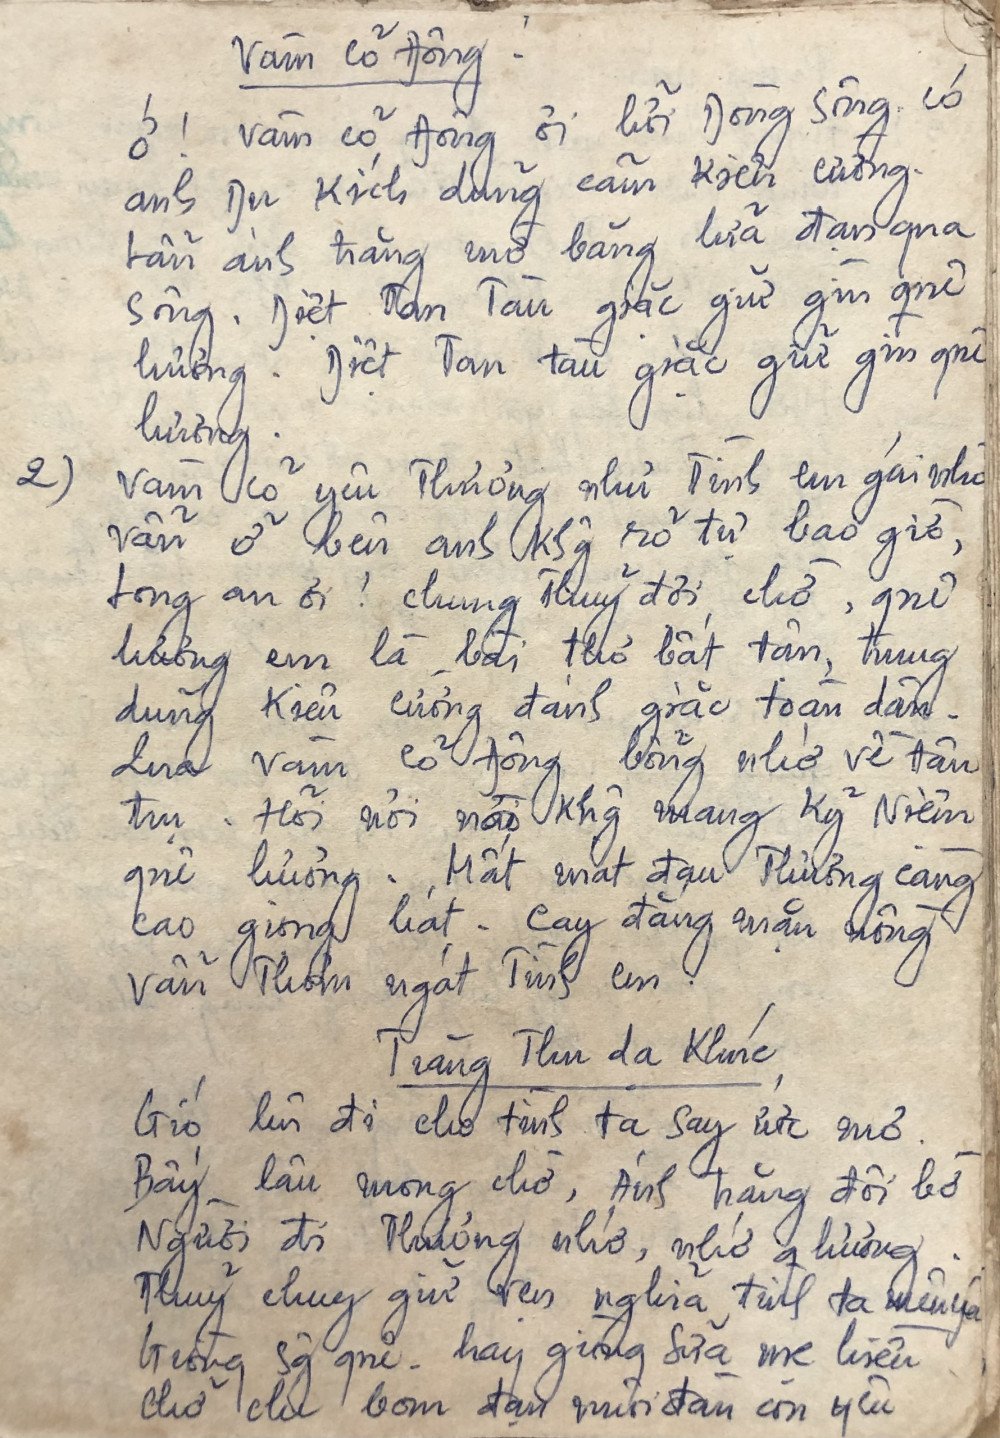 Vàm Cỏ Đông :
Ớ ! Vàm Cỏ Đông ơi hỡi Dòng Sông. Có
anh Du Kích dũng cảm kiên cường.
Lẫn ánh trăng mờ băng lửa đạn qua
Sông. Diệt Tan Tàu giặc giữ gìn quê
hương. Diệt Tan tàu giặc giữ gìn quê
hương.
2) Vàm Cỏ yêu Thương như Tình em gái nhỏ
Vẫn ở bên anh Khg rõ tự bao giờ,
Long an ơi ! chung Thuỷ đợi chờ, quê
hương em là bài thơ bất tận, trung
dũng Kiên cường đánh giặc toàn dân.
Qua Vàm Cỏ Đông bỗng nhớ về tân
trụ. Hỏi nơi nào Khg mang Kỷ Niệm
quê hương. Mất mát đau Thương càng
cao giọng hát. Cay đắng mặn nồng
Vẫn Thơm ngát Tình em.
Trăng Thu dạ Khúc
Gió lên đi cho tình ta Say ước mơ.
Bấy lâu mong chờ, Ánh trăng đôi bờ
Người đi Thương nhớ, nhớ q hương.
Thuỷ chug giữ vẹn nghĩa tình ta
Giòng Sg quê. hay giòng Sữa mẹ hiền
Chở che bom đạn nuôi đàn con yêu